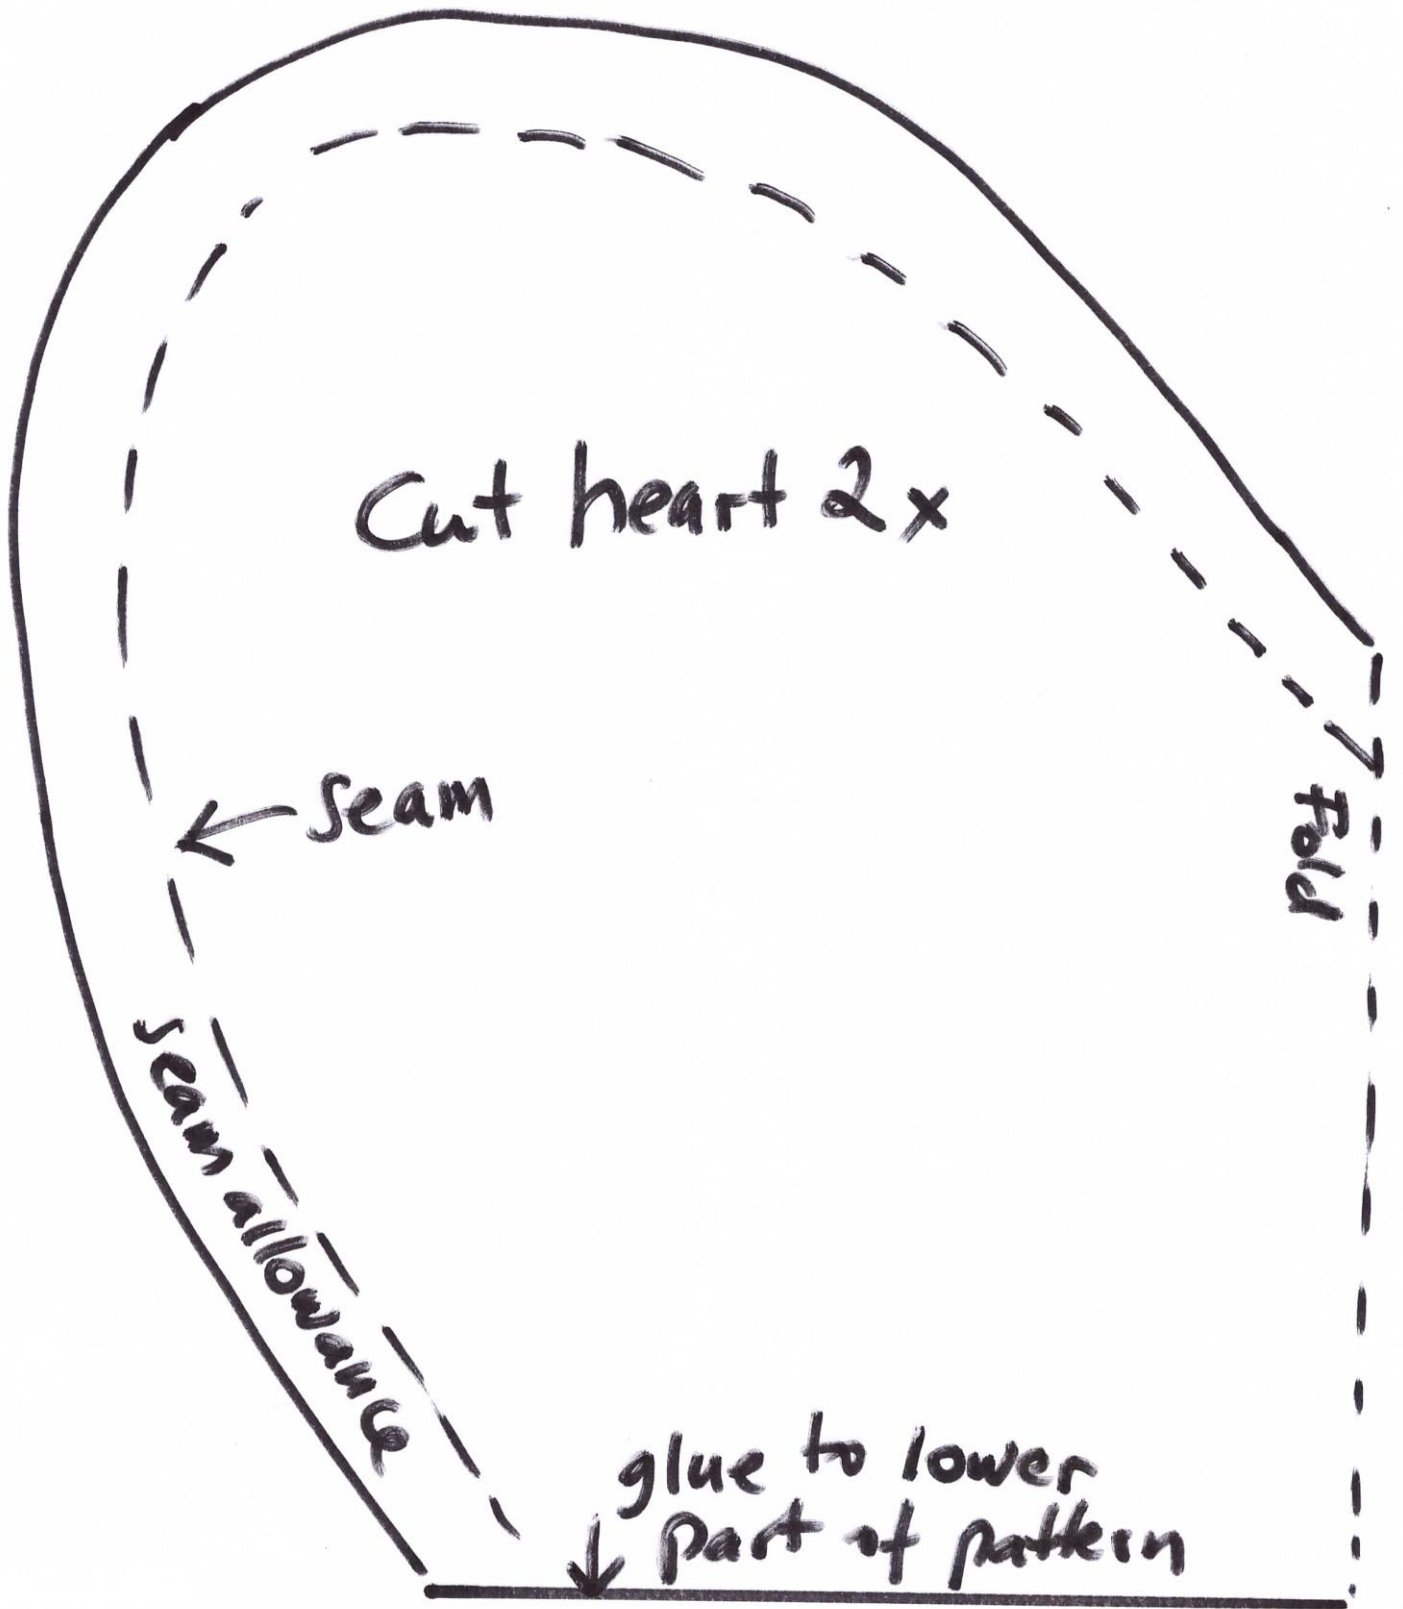 Cut heart 2x
seam
Fold
seam allowance
glue to lower
part of pattern